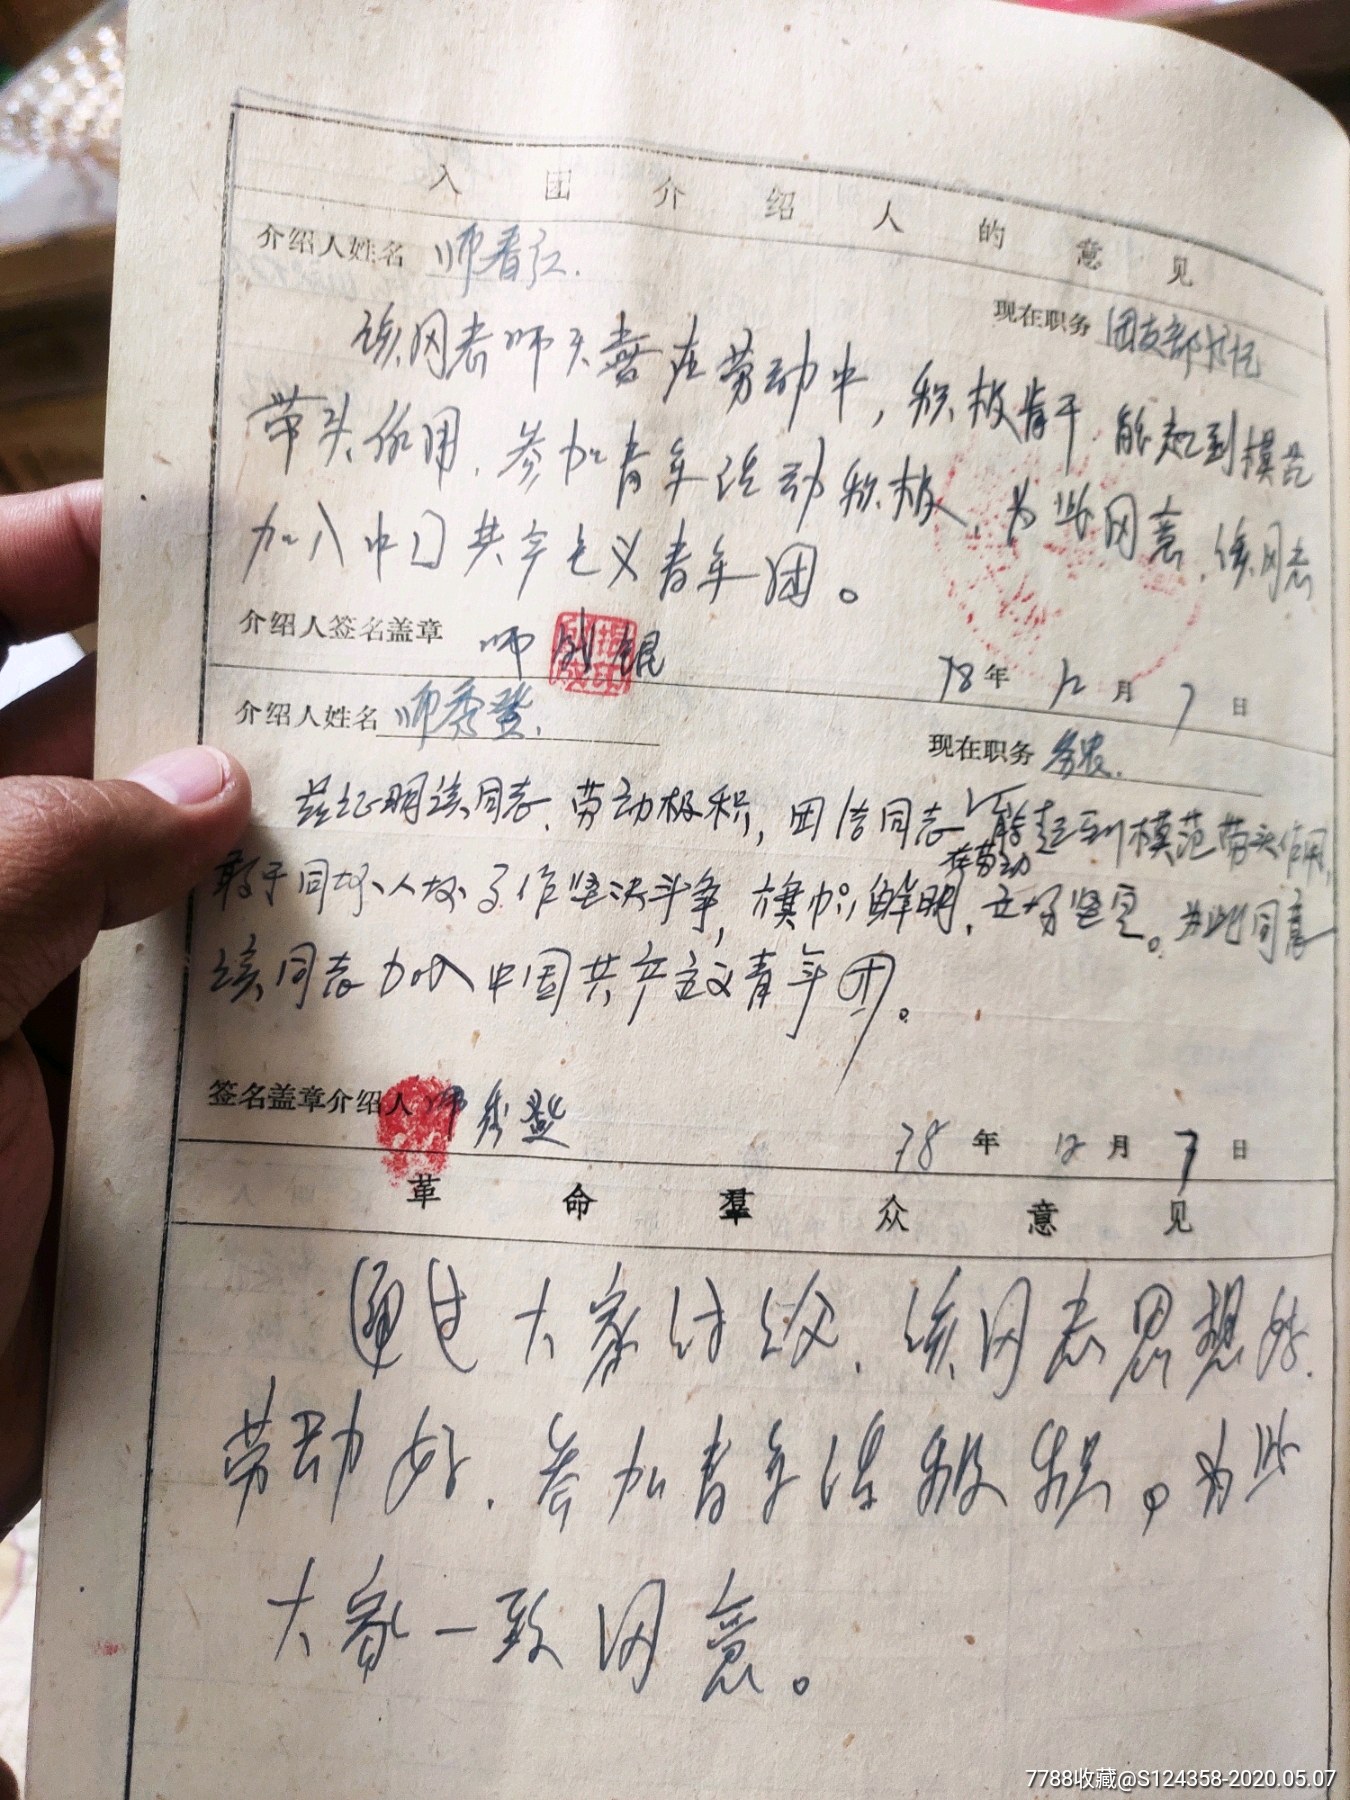 入团介绍人的意见
介绍人姓名 师春江. 现在职务 团支部书记
该同志师天喜在劳动中，积极肯干.能起到模范
带头作用.参加青年活动积极.为此同意.该同志
加入中国共产主义青年团。
介绍人签名盖章 师 锟 78年12月7日
介绍人姓名 师秀登. 现在职务 务农.
兹证明该同志.劳动极积,团结同志 在劳动能起到模范带头作用,
敢于同坏人坏事作坚决斗争,旗帜鲜明.立场坚定。为此同意
该同志加入中国共产主义青年团。
签名盖章介绍人 师秀登 78年12月7日
革命羣众意见
通过大家讨论.该同志思想好.
劳动好.参加青年活极积。为此
大家一致同意。
7788收藏@S124358-2020.05.07